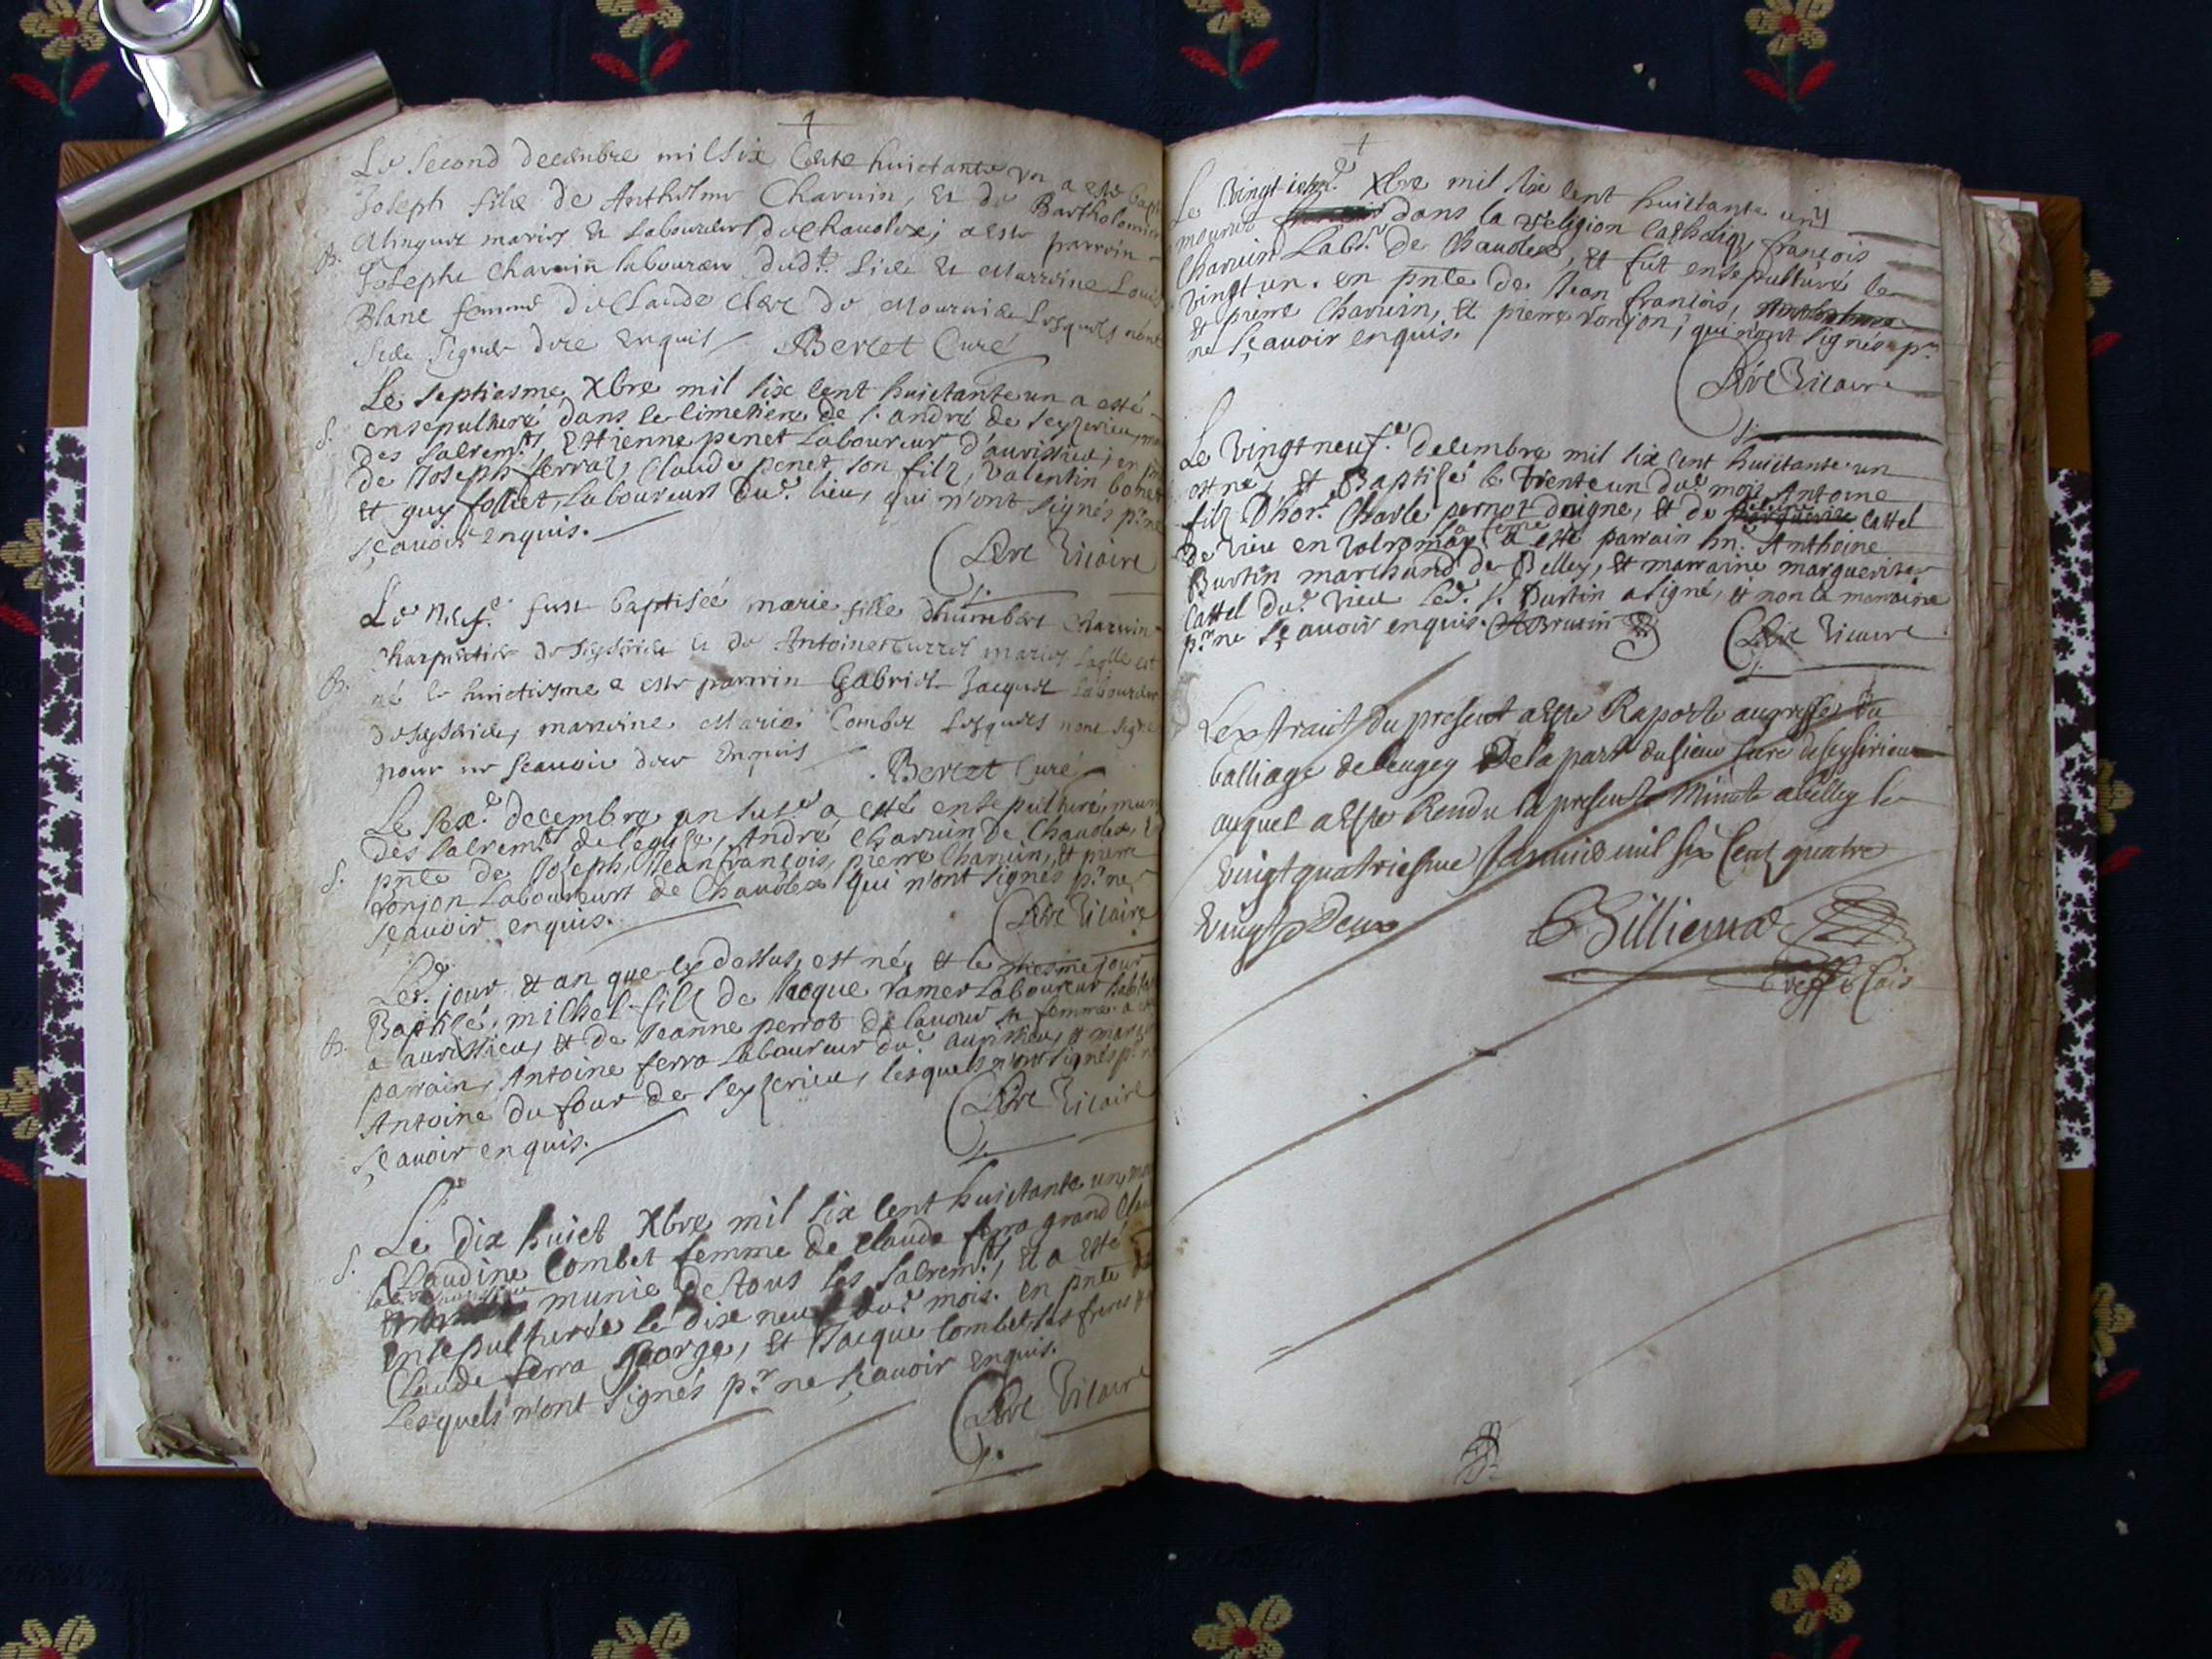 Le second decembre mil six cents huictante vn a esté bapt
Joseph filz de Antholme Charuin, et de Bartholomie
mariez et laboureurs de Chaudex; a esté parrein
B.
Josephe Charuin laboureur dudt. lieu et Marreine Louis
Blanc femme de Claude Clerc de lesquels n'ont
sceu signer de ce enquis Bercet Curé
Le septiesme Xbre mil six cent huictante un a esté
S.
ensepulturé dans le cimetiere de s. andré de seyzerieu, mu
des sacremts, Ettienne penet Laboureur d'aurissieu; en pn
de Joseph ferraz, Claude penet son filz, Valentin bonet
et guy folliet, laboureurs dud. lieu, qui n'ont signés pr. ne
sçauoir enquis.
Clerc Vicaire
Le neuf.e fust baptisée marie fille d'humbert Charuin
charpentier de et de Antoinette mariez laqlle est
B.
né le huictiesme a esté parrein Gabriel Jacquet laboureur
marreine Marie Combet lesquels nont signé
pour ne scauoir de ce enquis
Bercet Curé
Le decembre an susd a esté ensepulturé, muni
des sacremts de l'eglise, André Charuin De Chaudex, e
S.
pnce de Joseph, Jean françois, pierre Charuin, et pierre
ronjon Laboureurs de Chaudex qui n'ont signés pr. ne
sçauoir enquis.
Clerc Vicaire
Led. jour, et an que cy dessus, est né, et le mesme jour
Baptisé, michel filz de Jacque ramer Laboureur
B.
a aurissieu, et de Jeanne perrot de sa femme. a
parrain, Antoine ferra laboureur dud. aurissieu, et mar
Antoine du four de seyzerieu, lesquels n'ont signés pr. n
sçauoir enquis.
Clerc Vicaire
Le dix huict Xbre mil six cent huictante un, mo
S.
Claudine Combet femme de Claude ferra grand Clau
munie de tous les sacremts, et a esté
ensepulturée le dix neuf dud. mois. en pnce de
Claude ferra george, et Jacque Combet ses freres
Lesquels n'ont signés pr. ne sçauoir enquis.
Clerc Vicaire
Le Vingtiesme Xbre mil six cent huictante un
mourut dans la religion Catholiq, françois
Charuin Labr. de Chaudex, et fut ensepulturé le
vingt un. en pnce de Jean françois,
et pierre Charuin, et pierre ronjon; qui n'ont signés pr.
ne sçauoir enquis.
Clerc Vicaire
Le Vingt neuf.e decembre mil six cent huictante un
est né, et Baptisé le trente un dud. mois Antoine
filz d'hor. Charle pernot doigne, et de Cattel
de vieu en Valromay sa feme a esté parrain hn. Anthoine
Burtin marchand de Belley, et marraine marguerite
Cattel dud. vieu led. s. Burtin a signé, et non la marraine
pr. ne sçauoir enquis. Clerc Vicaire
Lextrait du present a esté Raporté au greffe du
balliage de beugey De la part du sieur Cure de seyserieu
auquel a esté Rendu la presente Minute a belley le
Vingt quatriesme Januier mil six Cent quatre
Vingts Deux
Billiema